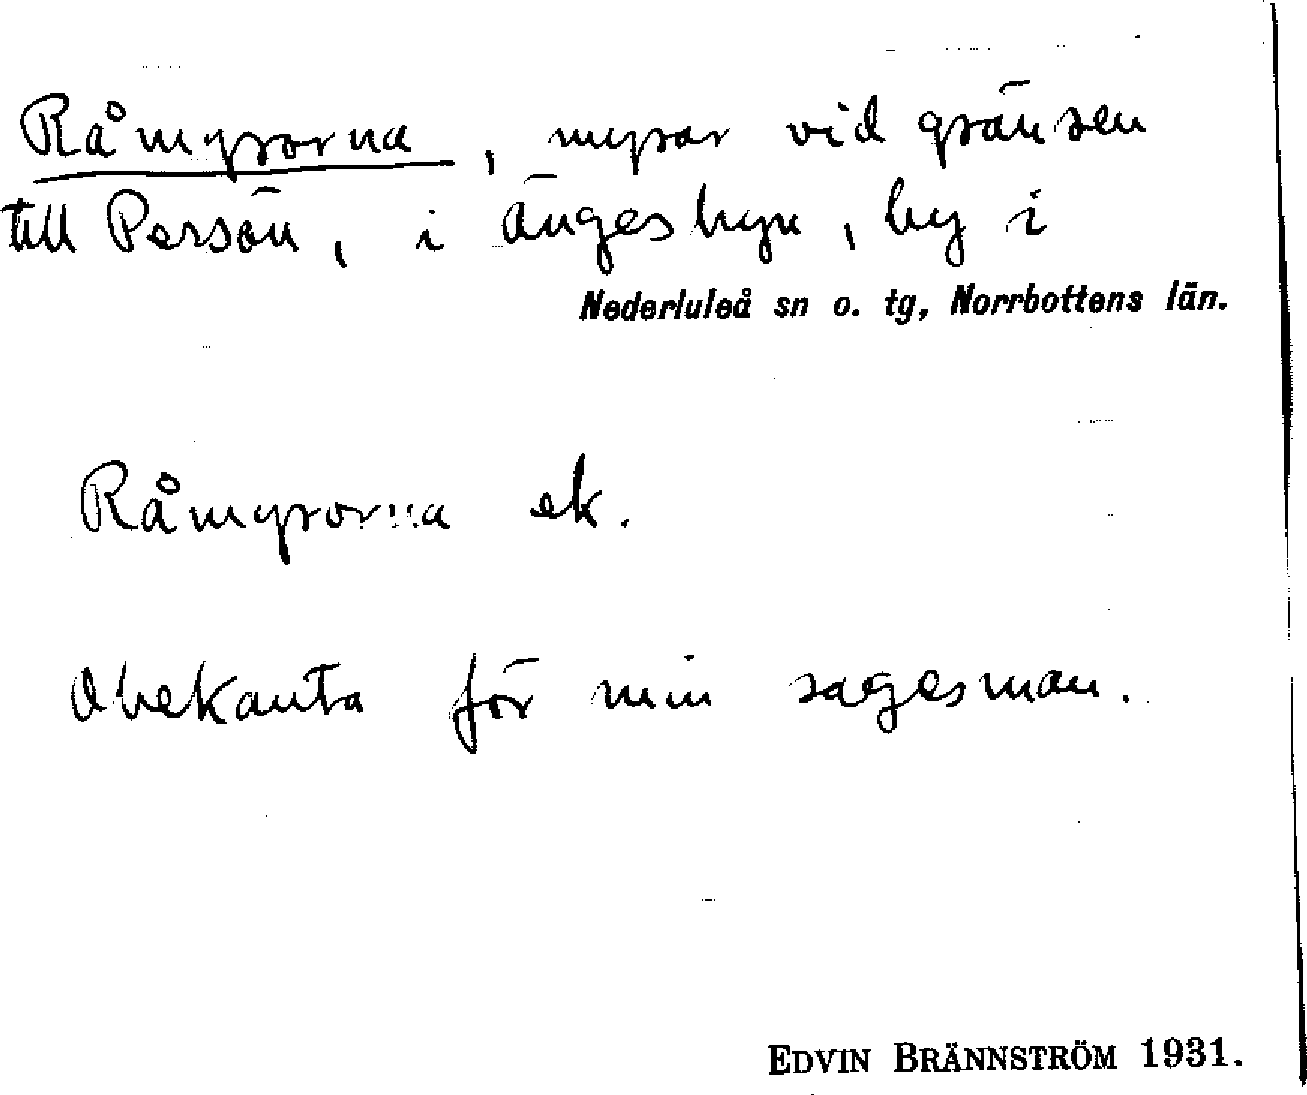 Råmyrorna, myror vid gränsen
till Persön, i Ängesbyn, by i
Nederluleå sn o. tg, Norrbottens län.
Råmyrorna ek.
Obekanta för min sagesman.
EDVIN BRÄNNSTRÖM 1931.